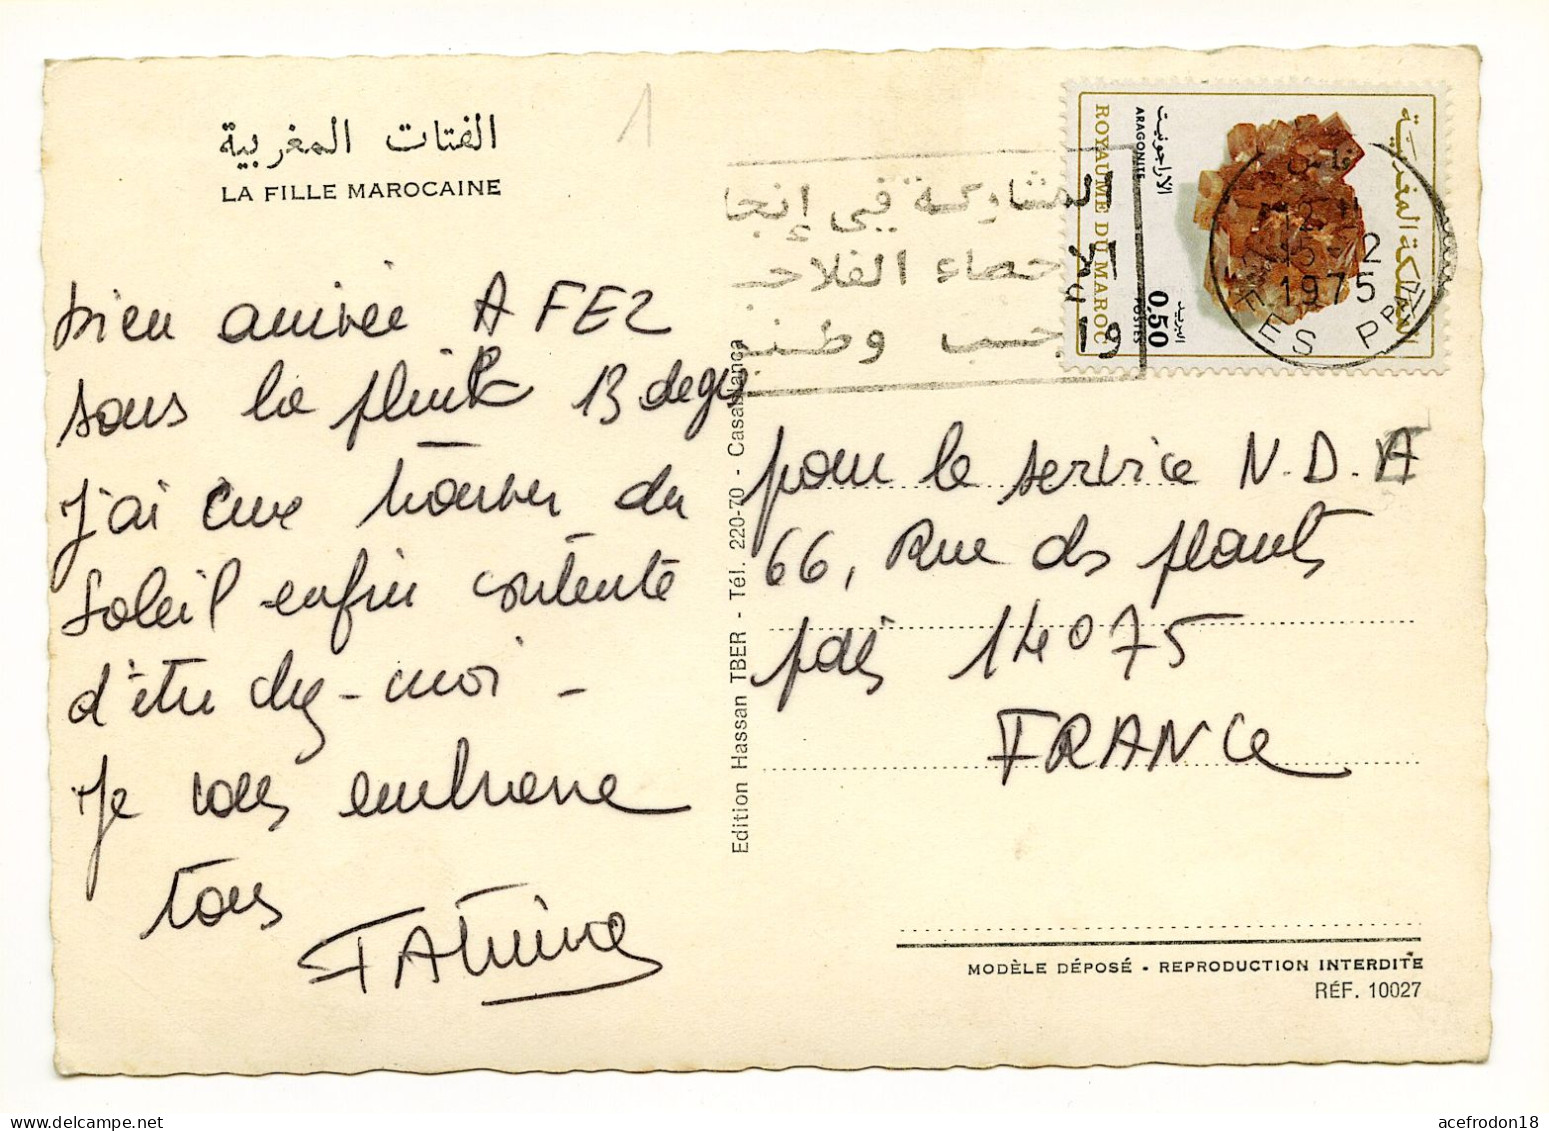 الفتات المغربية
LA FILLE MAROCAINE
1
bien arrivée A FEZ
sous la pluie 13 degrés
J'ai crue trouver du
Soleil enfin contente
d'être chez-moi -
Je vous embrasse
tous
FAtima
Edition Hassan TBER - Tél. 220-70 - Casablanca
المشاركة في إنجا
الإحصاء الفلاحـ
واجب وطنـ
المملكة المغربية
الاراجونيت
ARAGONITE
ROYAUME DU MAROC
البريد
0.50
POSTES
فاس
12
15-2
1975
FES PPAL
pour le service N.D.A
66, Rue des plants
paris 14 075
FRANCe
MODÈLE DÉPOSÉ - REPRODUCTION INTERDITE
RÉF. 10027
acefrodon18